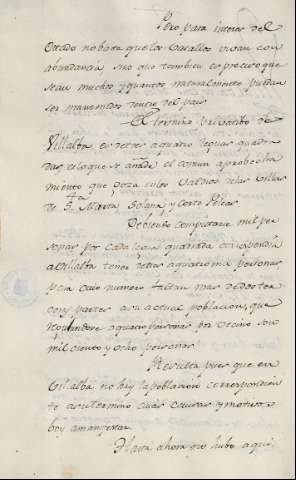 Pero para interes del
Estado no basta que los Vasallos vivan con
abundancia sino que tambien es preciso que
sean muchos y quantos naturalmente puedan
ser mantenidos dentro del pais
El termino privativo de
Villalba es de tres a quatro leguas quadra
das, a lo que se añade el comun aprobecha
miento que goza en los Valdios de las Villas
de Sta Marta, Solana y Corte Peleas.
Debiendo computarse mil per
sonas por cada legua quadrada correspondia
a Villalba tener de tres a quatro mil personas
para cuio numero faltan mas de dos ter
ceras partes a su actual poblacion, que
de quatro personas por vecino son
mil ciento y ocho personas
Resulta pues que en
Villalba no hay la poblacion correspondien
te a su termino cuias causas y motivos
boy a manifestar.
Hasta ahora que hubo aqui